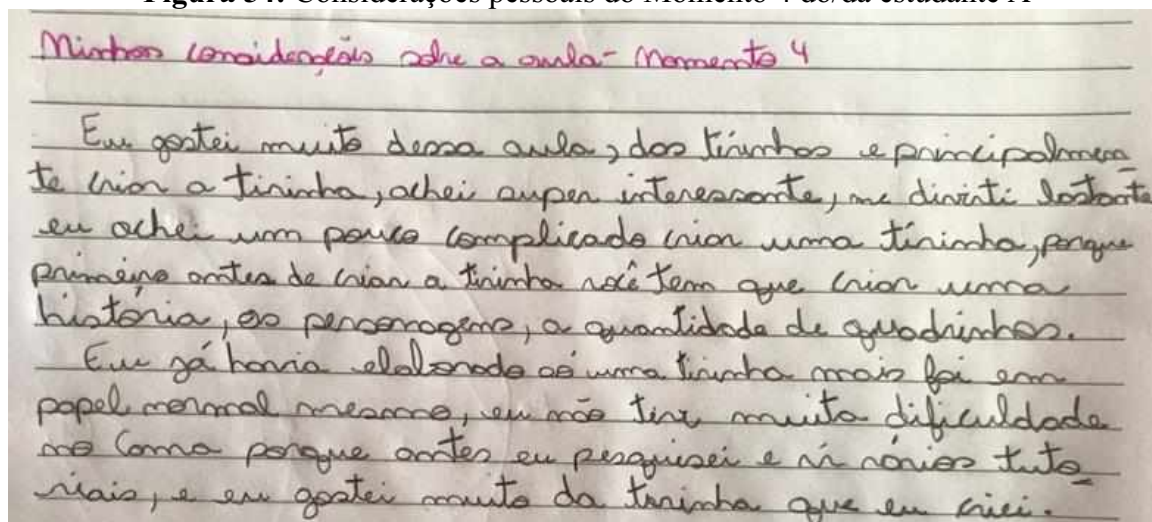 Figura 54: Considerações pessoais do Momento 4 do/da estudante A
Minhas considerações sobre a aula - Momento 4
Eu gostei muito dessa aula, das tirinhas e principalmen
te criar a tirinha, achei super interessante, me diverti bastante
eu achei um pouco complicado criar uma tirinha, porque
primeiro antes de criar a tirinha você tem que criar uma
história, os personagens, a quantidade de quadrinhos.
Eu já havia elaborado só uma tirinha mais foi em
papel normal mesmo, eu não tive muita dificuldade
no Canva porque antes eu pesquisei e vi vários tuto
riais, e eu gostei muito da tirinha que eu criei.